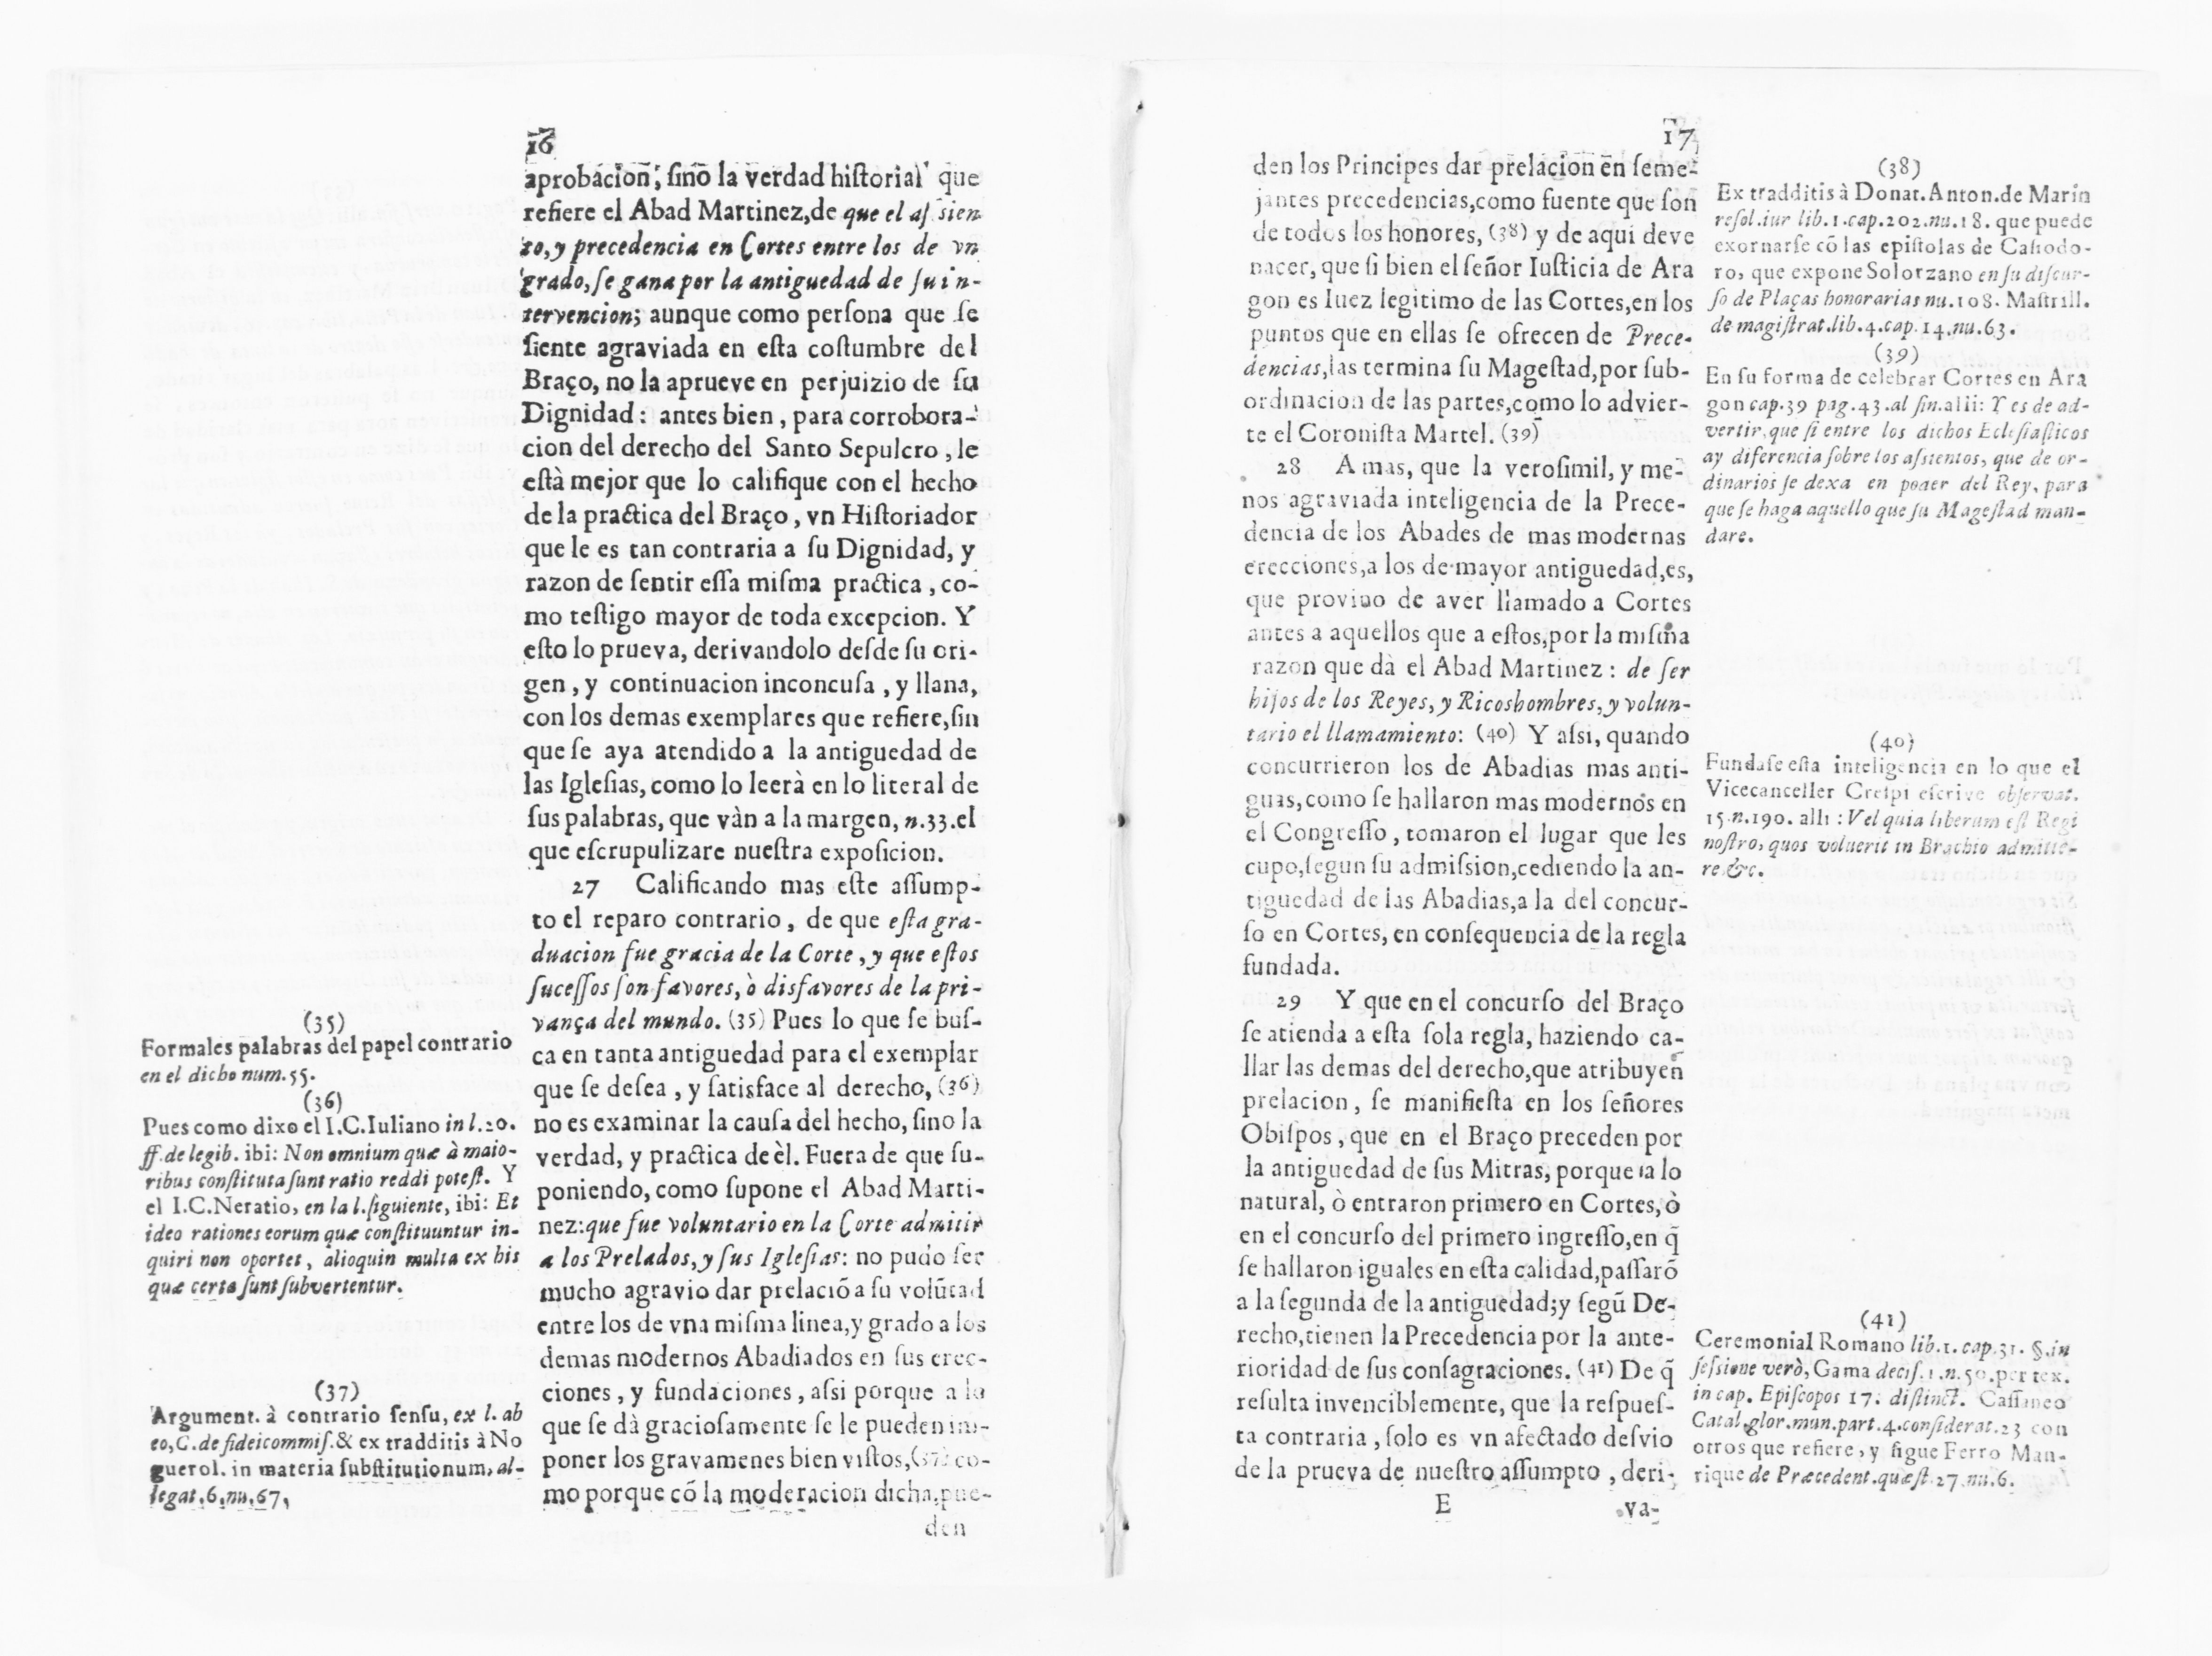 16
aprobacion, sino la verdad historial que
refiere el Abad Martinez,de que el assien
to,y precedencia en Cortes entre los de vn
grado,se gana por la antiguedad de su in-
tervencion; aunque como persona que se
siente agraviada en esta costumbre del
Braço, no la aprueve en perjuizio de su
Dignidad: antes bien, para corrobora-
cion del derecho del Santo Sepulcro, le
està mejor que lo califique con el hecho
de la practica del Braço, vn Historiador
que le es tan contraria a su Dignidad, y
razon de sentir essa misma practica, co-
mo testigo mayor de toda excepcion. Y
esto lo prueva, derivandolo desde su ori-
gen, y continuacion inconcusa, y llana,
con los demas exemplares que refiere,sin
que se aya atendido a la antiguedad de
las Iglesias, como lo leerà en lo literal de
sus palabras, que vàn a la margen, n.33.el
que escrupulizare nuestra exposicion.
27 Calificando mas este assump-
to el reparo contrario, de que esta gra-
duacion fue gracia de la Corte, y que estos
sucessos son favores, ò disfavores de la pri-
vança del mundo. (35) Pues lo que se bus-
ca en tanta antiguedad para el exemplar
que se desea, y satisface al derecho, (36)
no es examinar la causa del hecho, sino la
verdad, y practica de èl. Fuera de que su-
poniendo, como supone el Abad Marti-
nez:que fue voluntario en la Corte admitir
a los Prelados, y sus Iglesias: no pudo ser
mucho agravio dar prelaciõ a su volũtad
entre los de vna misma linea,y grado a los
demas modernos Abadiados en sus erec-
ciones, y fundaciones, assi porque a lo
que se dà graciosamente se le pueden im-
poner los gravamenes bien vistos,(37) co-
mo porque cõ la moderacion dicha,pue-
den
(35)
Formales palabras del papel contrario
en el dicho num.55.
(36)
Pues como dixo el I.C.Iuliano in l.20.
ff.de legib. ibi: Non omnium quæ à maio-
ribus constituta sunt ratio reddi potest. Y
el I.C.Neratio, en la l.siguiente, ibi: Et
ideo rationes eorum quæ constituuntur in-
quiri non oportet, alioquin multa ex his
quæ certa sunt subvertentur.
(37)
Argument. à contrario sensu, ex l. ab
eo,C.de fideicommis.& ex tradditis à No
guerol. in materia substitutionum, al-
legat.6.nu.67,
17
den los Principes dar prelacion en seme-
jantes precedencias,como fuente que son
de todos los honores, (38) y de aqui deve
nacer, que si bien el señor Iusticia de Ara
gon es Iuez legitimo de las Cortes,en los
puntos que en ellas se ofrecen de Prece-
dencias,las termina su Magestad,por sub-
ordinacion de las partes,como lo advier-
te el Coronista Martel. (39)
28 A mas, que la verosimil, y me-
nos agraviada inteligencia de la Prece-
dencia de los Abades de mas modernas
erecciones,a los de mayor antiguedad,es,
que provino de aver llamado a Cortes
antes a aquellos que a estos,por la misma
razon que dà el Abad Martinez: de ser
hijos de los Reyes, y Ricoshombres, y volun-
tario el llamamiento: (40) Y assi, quando
concurrieron los de Abadias mas anti-
guas,como se hallaron mas modernos en
el Congresso, tomaron el lugar que les
cupo,segun su admission,cediendo la an-
tiguedad de las Abadias,a la del concur-
so en Cortes, en consequencia de la regla
fundada.
29 Y que en el concurso del Braço
se atienda a esta sola regla, haziendo ca-
llar las demas del derecho,que atribuyen
prelacion, se manifiesta en los señores
Obispos, que en el Braço preceden por
la antiguedad de sus Mitras, porque a lo
natural, ò entraron primero en Cortes, ò
en el concurso del primero ingresso,en q̃
se hallaron iguales en esta calidad,passarõ
a la segunda de la antiguedad;y segũ De-
recho,tienen la Precedencia por la ante-
rioridad de sus consagraciones. (41) De q̃
resulta invenciblemente, que la respues-
ta contraria, solo es vn afectado desvio
de la prueva de nuestro assumpto, deri-
E va-
(38)
Ex tradditis à Donat.Anton.de Marin
resol.iur lib.1.cap.202.nu.18. que puede
exornarse cõ las epistolas de Casiodo-
ro, que expone Solorzano en su discur-
so de Plaças honorarias nu.108. Mastrill.
de magistrat.lib.4.cap.14.nu.63.
(39)
En su forma de celebrar Cortes en Ara
gon cap.39 pag.43.al fin.alli: Y es de ad-
vertir,que si entre los dichos Eclesiasticos
ay diferencia sobre los assientos, que de or-
dinarios se dexa en poder del Rey, para
que se haga aquello que su Magestad man-
dare.
(40)
Fundase esta inteligencia en lo que el
Vicecanceller Crespi escrive observat.
15.n.190. alli: Vel quia liberum est Regi
nostro, quos voluerit in Brachio admitte-
re &c.
(41)
Ceremonial Romano lib.1.cap.31. §.in
sessione verò, Gama decis.1.n.50.per tex.
in cap. Episcopos 17. distinct. Cassaneo
Catal.glor.mun.part.4.considerat.23 con
otros que refiere, y sigue Ferro Man-
rique de Præcedent.quæst.27.nu.6.